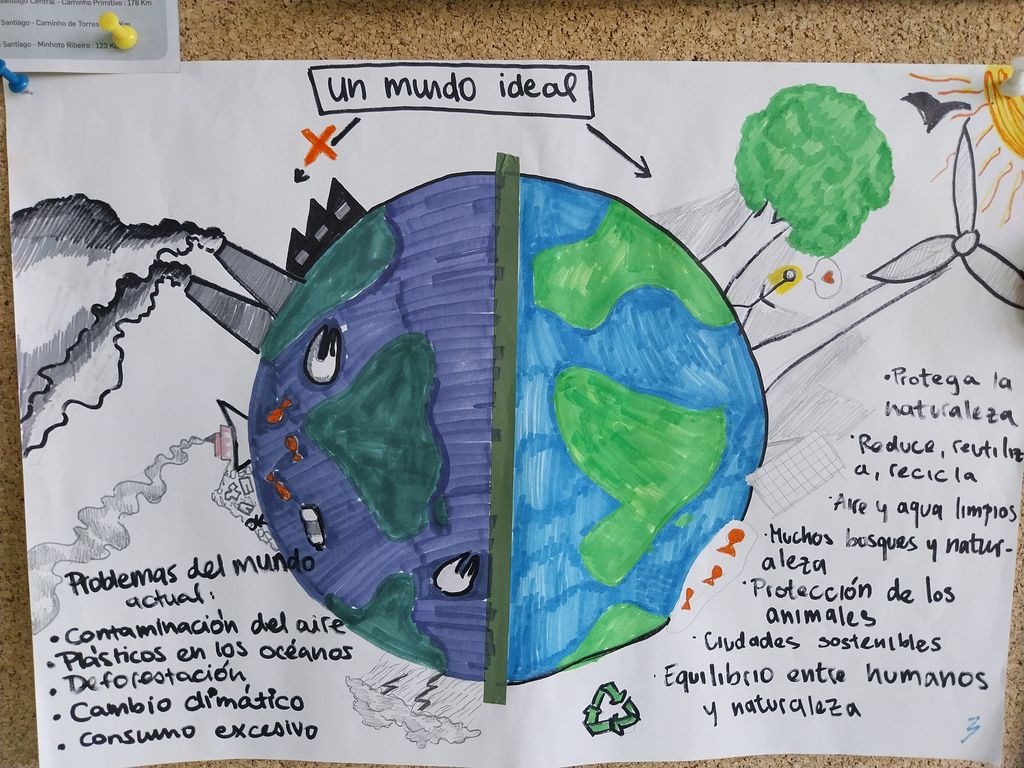 Santiago Central - Caminho Primitivo : 178 Km
Santiago - Caminho de Torres
Santiago - Minhoto Ribeiro : 123 Km
un mundo ideal
Problemas del mundo
actual:
• Contaminación del aire
• Plásticos en los océanos
• Deforestación
• Cambio climático
• Consumo excesivo
• Protega la
naturaleza
• Reduce, reutiliz
a, recicla
• Aire y agua limpios
• Muchos bosques y natur-
aleza
• Protección de los
animales
• Ciudades sostenibles
• Equilibrio entre humanos
y naturaleza
3